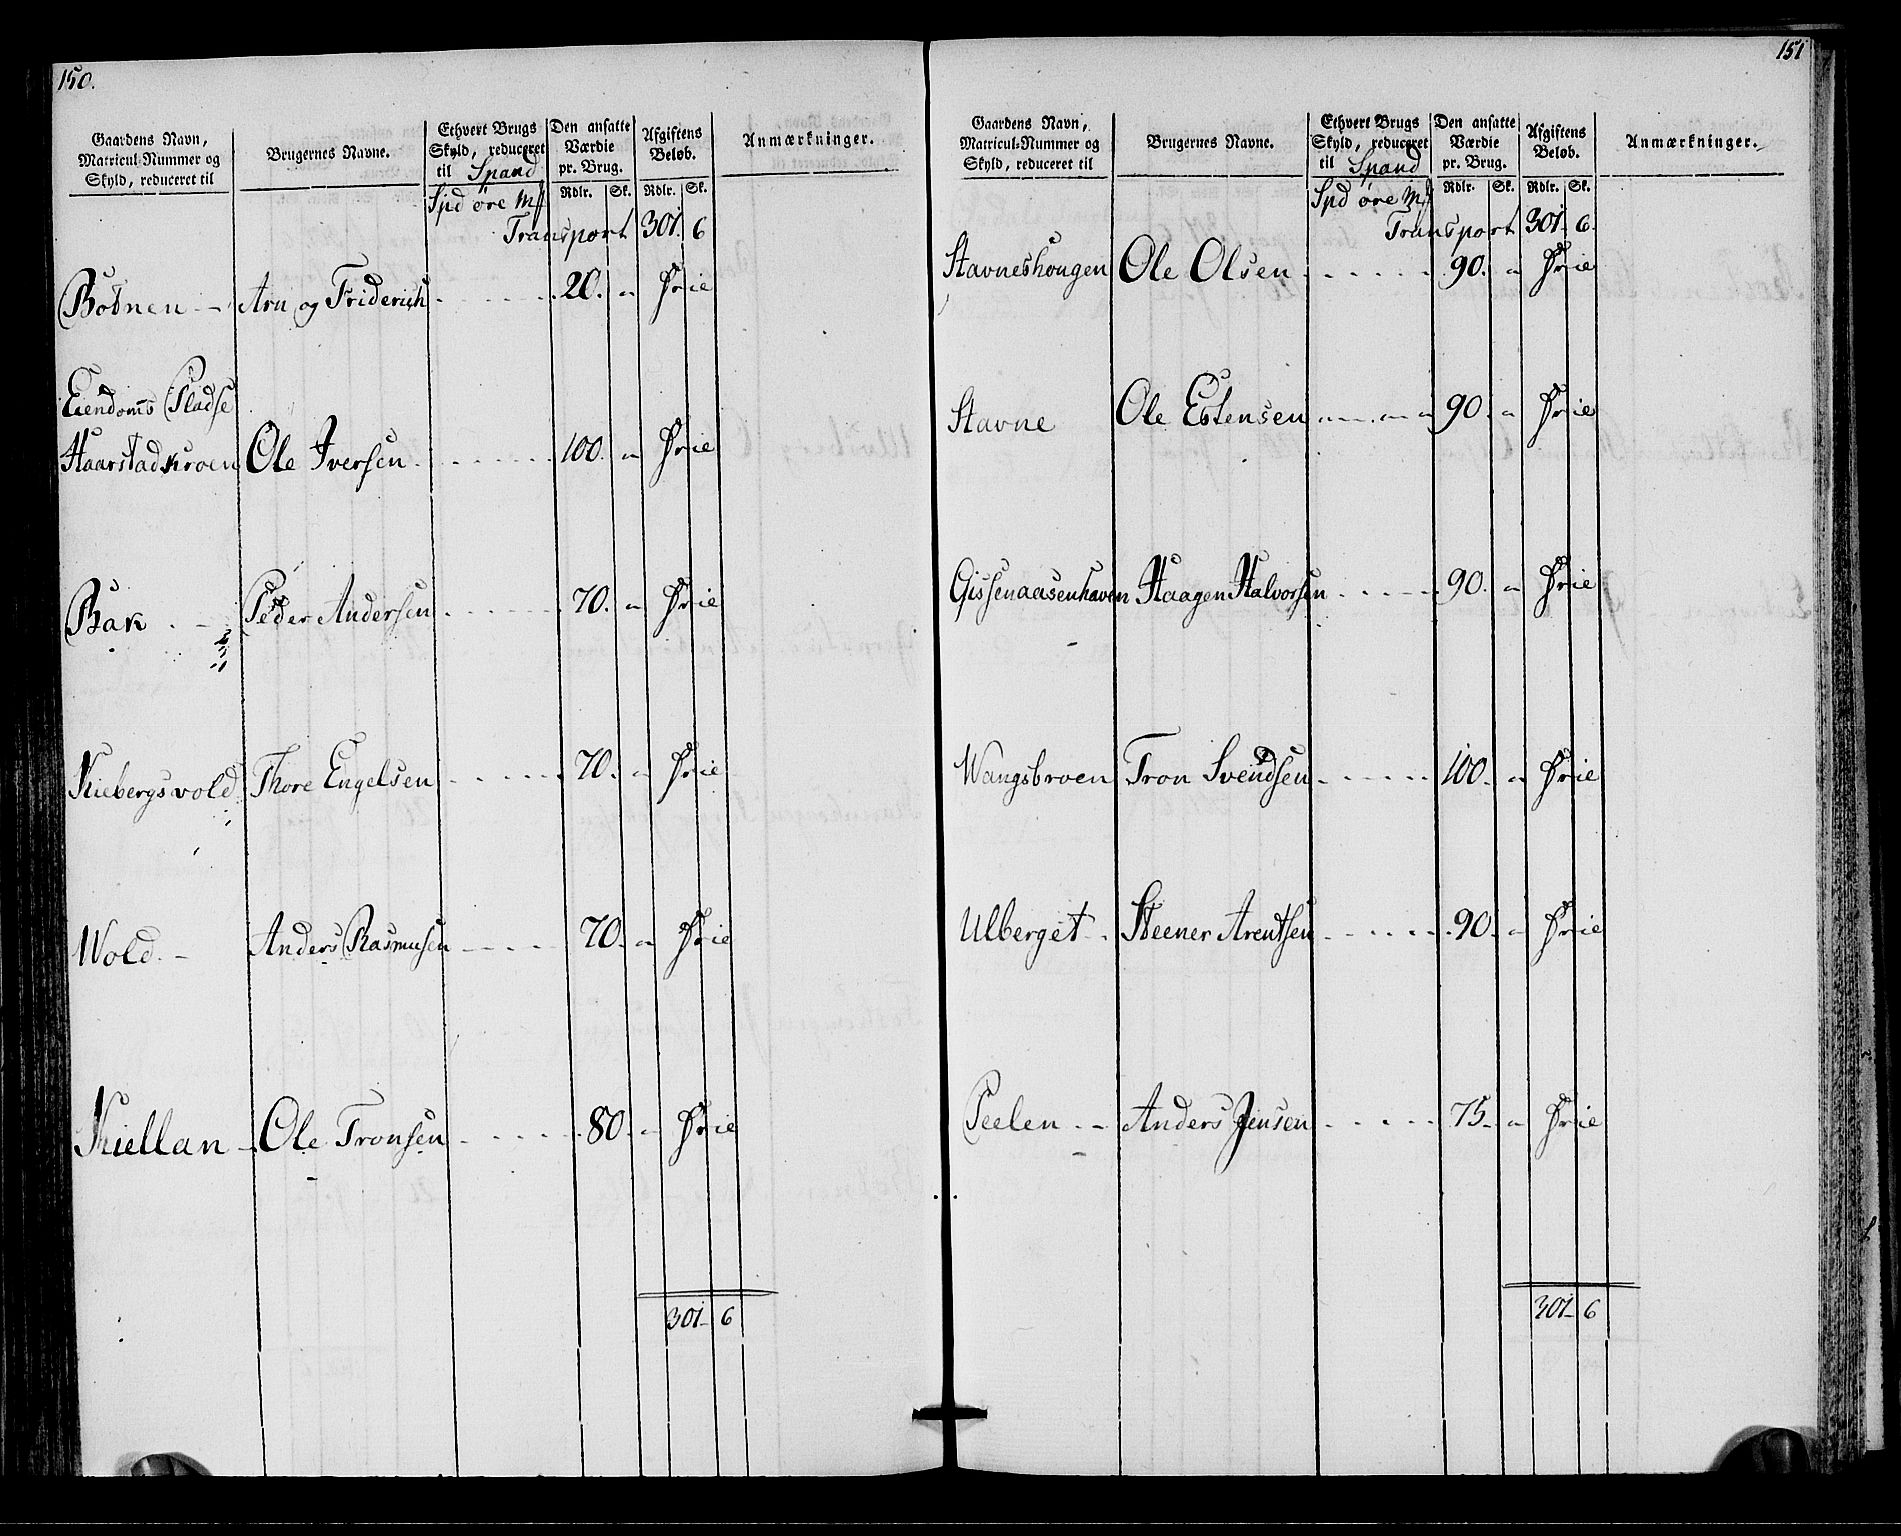 150.
Gaardens Navn, Matricul-Nummer og Skyld, reduceret til
Brugernes Navne.
Ethvert Brugs Skyld, reduceret til Spand
Den ansatte Værdie pr. Brug.
Afgiftens Beløb.
Anmærkninger.
Spd øre Mk Rdlr. Sk. Rdlr. Sk.
Transport 301. 6
Botnen - Arn og Friderich 20. " Frie
Eiendoms Pladse
Haarstadkroen Ole Iversen 100. " Frie
Bak - Peder Andersen 70. " Frie
Kiebergsvold Thore Engelsen 70. " Frie
Wold - Anders Rasmusen 70. " Frie
Kiellan - Ole Tronsen 80. " Frie
301- 6
151
Gaardens Navn, Matricul-Nummer og Skyld, reduceret til
Brugernes Navne.
Ethvert Brugs Skyld, reduceret til Spand
Den ansatte Værdie pr. Brug.
Afgiftens Beløb.
Anmærkninger.
Spd øre Mk Rdlr. Sk. Rdlr. Sk.
Transport 301. 6.
Stavneshougen Ole Olsen 90. " Frie
Stavne Ole Estensen 90. " Frie
Gissenaasenhaven Haagen Halvorsen 90. " Frie
Wangsbroen Tron Svendsen 100. " Frie
Ulberget Steener Arentsen 90. " Frie
Peelen - Anders Jensen 75. " Frie
301- 6